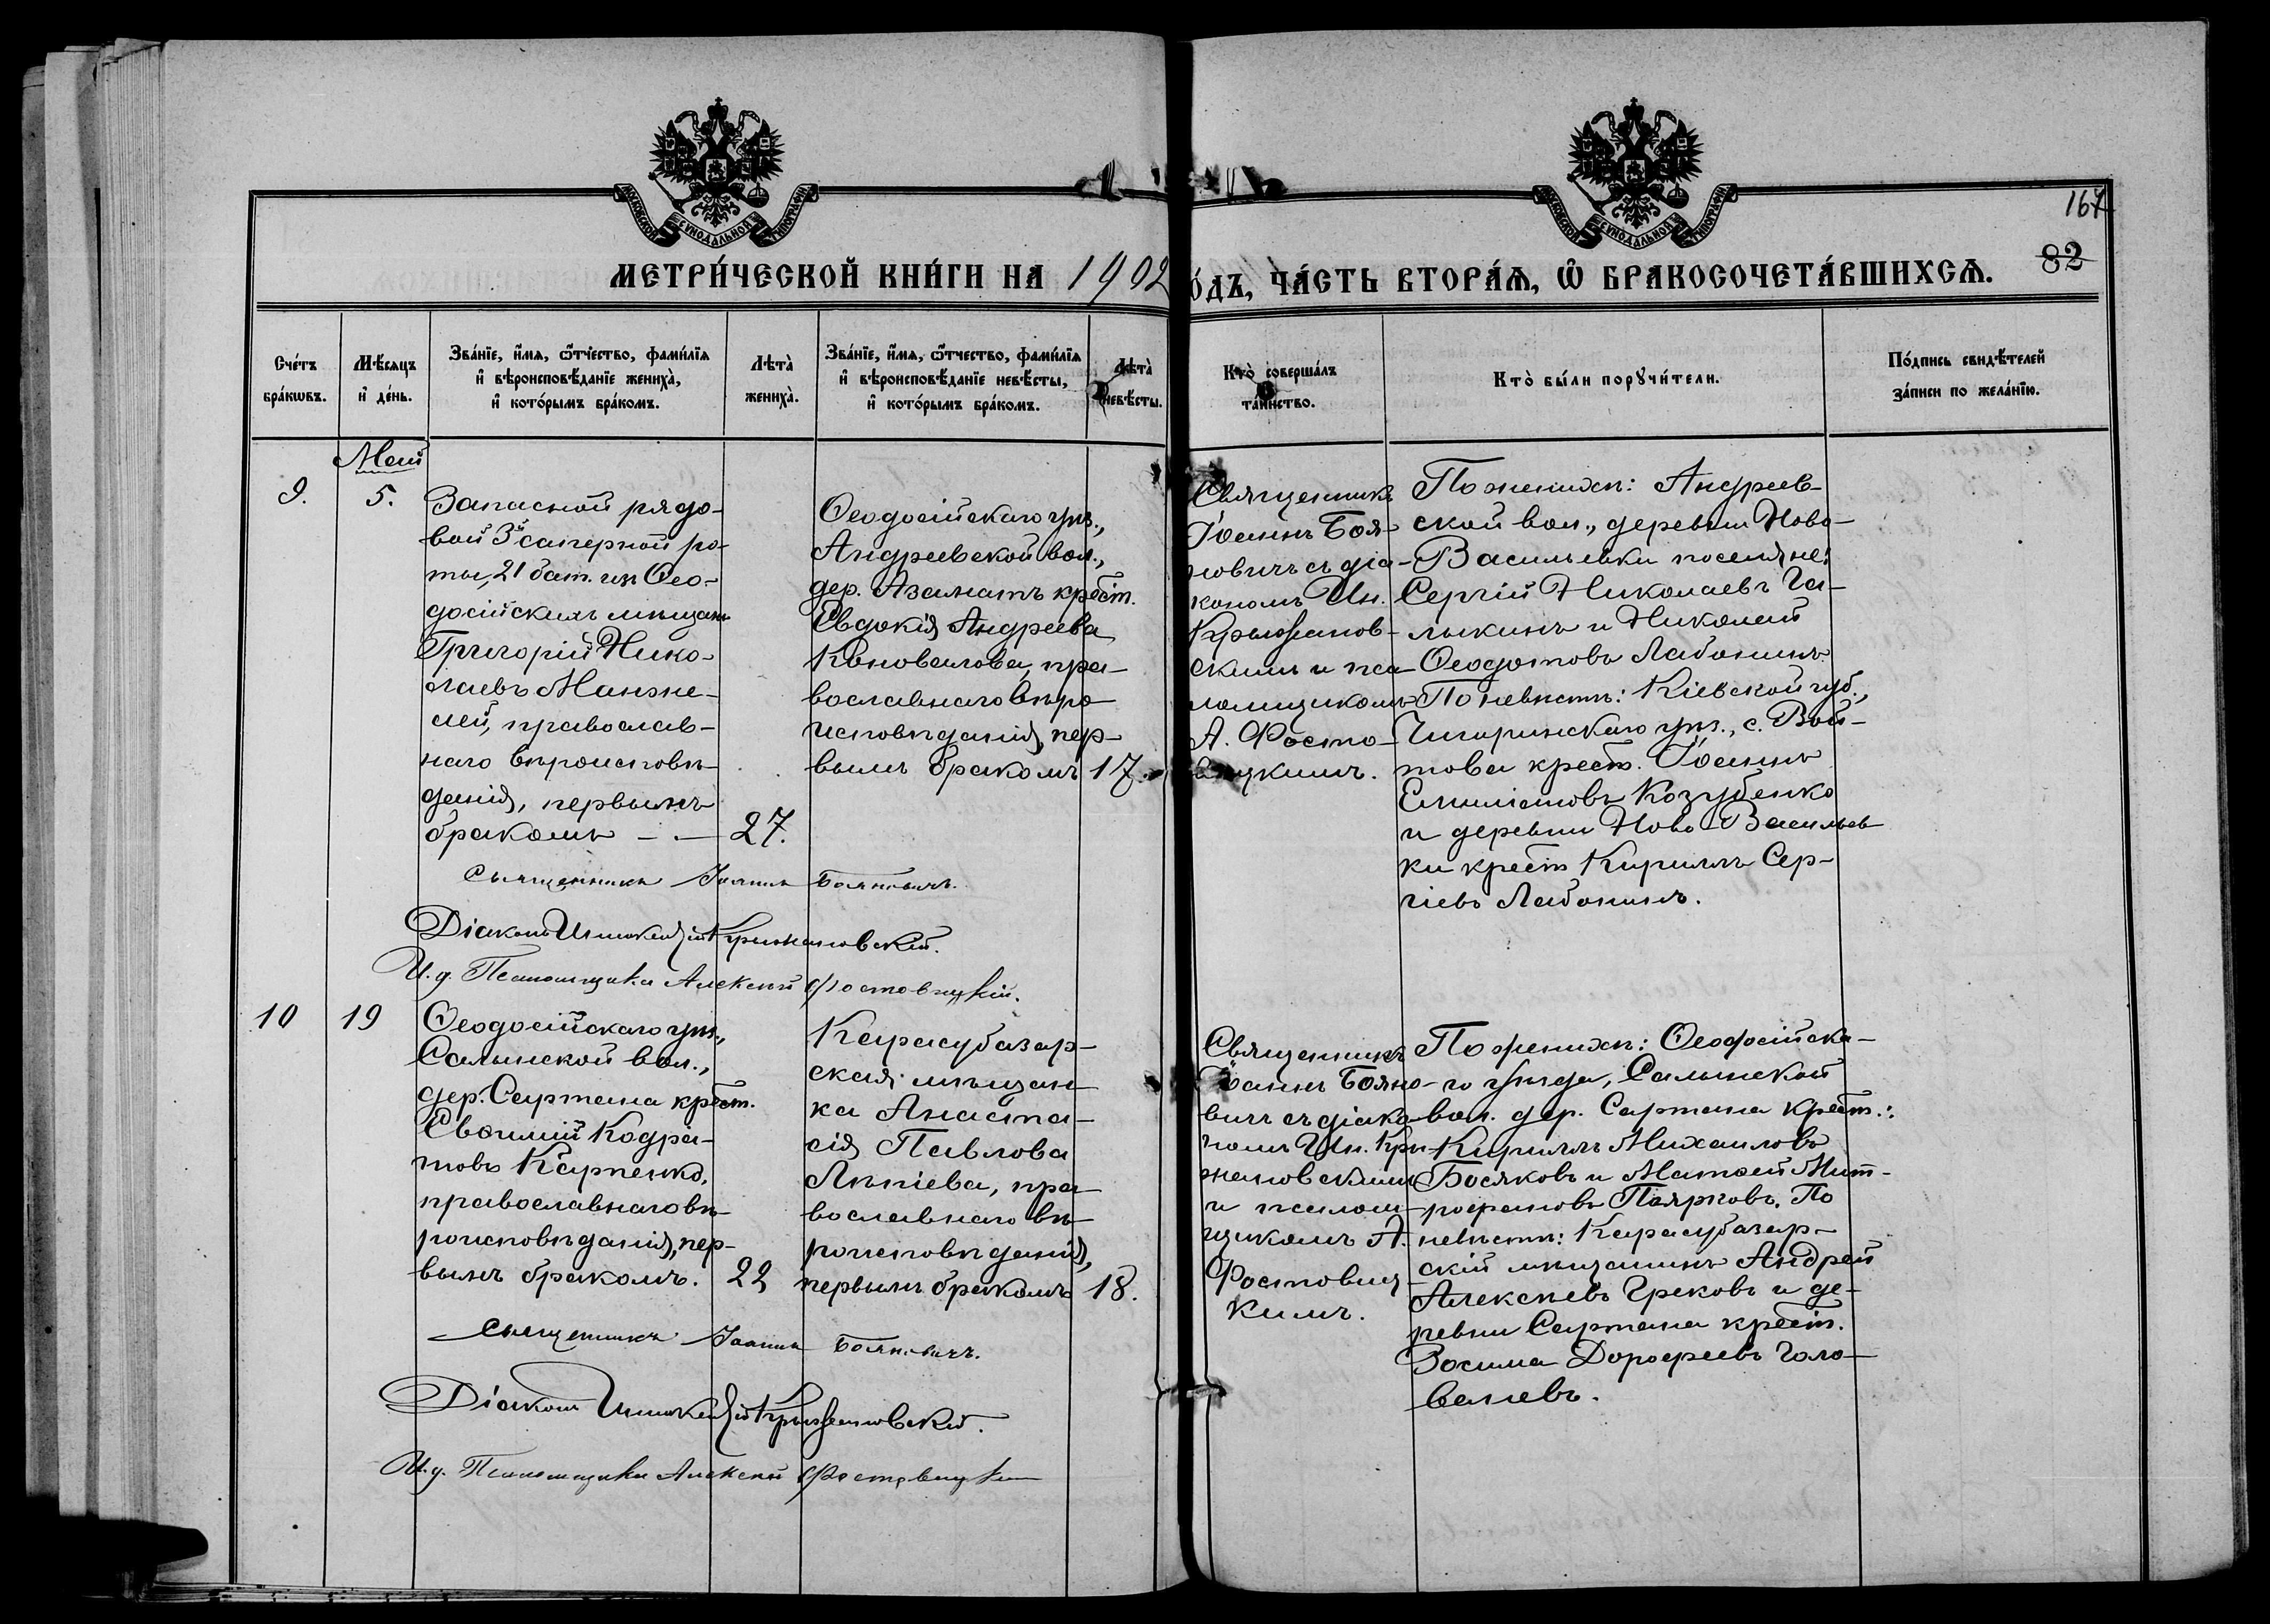 МОСКОВСКОЙ СѴНОДАЛЬНОЙ ТИПОГРАФІИ
МОСКОВСКОЙ СѴНОДАЛЬНОЙ ТИПОГРАФІИ
167
82
МЕТРИ́ЧЕСКОЙ КНИ́ГИ НА 1902
О́ДЪ, ЧА́СТЬ ВТОРА́Ѧ, Ѽ БРАКОСОЧЕТА́ВШИХСѦ.
Сче́тъ
бра́кѡвъ.
Мѣ́сяцъ
и҆ де́нь.
Зва́нїе, и҆́мѧ, ѻ҆́тчество, фами́лїѧ
и҆ вѣроисповѣ́данїе жениха̀,
и҆ кото́рымъ бра́комъ.
Лѣта̀
жениха̀.
Зва́нїе, и҆́мѧ, ѻ҆́тчество, фами́лїѧ
и҆ вѣроисповѣ́данїе невѣ́сты,
и҆ кото́рымъ бра́комъ.
Лѣта̀
невѣ́сты.
Кто̀ соверша́лъ
та́инство.
Кто̀ бы́ли порꙋчи́тели.
По́дпись свидѣ́телей
за́писи по жела́нїю.
Май
9.
5.
Запасной рядо-
вой 3й саперной ро-
ты, 21 бат. изъ Ѳео-
досійскихъ мѣщанъ
Григорій Нико-
лаевъ Манже-
лей, православ-
наго вѣроисповѣ-
данія, первымъ
бракомъ — —
27.
Ѳеодосійскаго уѣз.,
Андреевской вол.,
дер. Азаматъ крест.
Евдокія Андреева
Коновалова, пра-
вославнаго вѣро-
исповѣданія, пер-
вымъ бракомъ
17.
Священникъ
Іоаннъ Боя-
новичъ съ діа-
кономъ Ин.
Крыжанов-
скимъ и пса-
ломщикомъ
А. Фосто-
вецкимъ.
По женихѣ: Андреев-
ской вол., деревни Ново-
Васильевки поселяне:
Сергій Николаевъ Га-
лыкинъ и Николай
Ѳеодотовъ Лабонинъ.
По невѣстѣ: Кіевской губ.,
Чигиринскаго уѣз., с. Вой-
това крест. Іоаннъ
Емиліановъ Козубенко
и деревни Ново-Васильев-
ки крест Кириллъ Сер-
гіевъ Лабонинъ.
Священникъ Іоаннъ Бояновичъ.
Діаконъ Иннокентій Крыжановскій.
И. д. Псаломщика Алексѣй Фостовецкій.
10
19
Ѳеодосійскаго уѣз.,
Салынской вол.,
дер. Сартана крест.
Евѳимій Кодра-
товъ Карпенко,
православнаго вѣ-
роисповѣданія, пер-
вымъ бракомъ.
22
Карасубазар-
ская мѣщан-
ка Анаста-
сія Павлова
Лѣпіева, пра-
вославнаго вѣ-
роисповѣданія,
первымъ бракомъ
18.
Священникъ
Іоаннъ Бояно-
вичъ съ діако-
номъ Ин. Кры-
жановскимъ
и псалом-
щикомъ А.
Фостовец-
кимъ.
По женихѣ: Ѳеодосійска-
го уѣзда, Салынской
вол. дер. Сартана крест.:
Кириллъ Михаиловъ
Босяковъ и Матѳей Мит-
рофановъ Поярковъ. По
невѣстѣ: Карасубазар-
скій мѣщанинъ Андрей
Алексѣевъ Грековъ и де-
ревни Сартана крест.
Зосима Дороѳеевъ Голо-
валевъ.
Священникъ Іоаннъ Бояновичъ.
Діаконъ Иннокентій Крыжановскій.
И. д. Псаломщика Алексѣй Фостовецкій